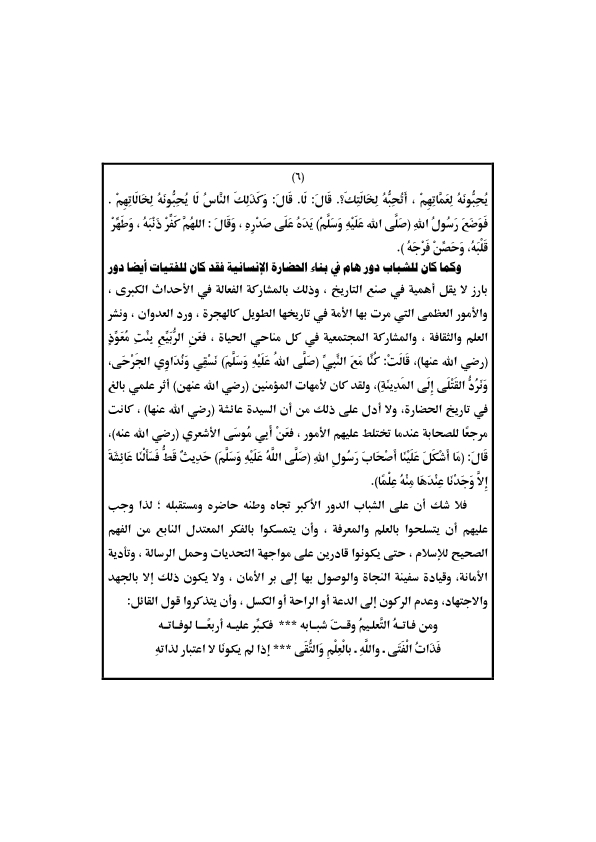 (٦)
يُحِبُّونَهُ لِعَمَّاتِهِمْ ، أَتُحِبُّهُ لِخَالَتِكَ؟. قَالَ: لَا. قَالَ: وَكَذَلِكَ النَّاسُ لَا يُحِبُّونَهُ لِخَالَاتِهِمْ .
فَوَضَعَ رَسُولُ اللهِ (صَلَّى الله عَلَيْهِ وَسَلَّمَ) يَدَهُ عَلَى صَدْرِهِ ، وَقَالَ : اللهُمَّ كَفِّرْ ذَنْبَهُ ، وَطَهِّرْ
قَلْبَهُ، وَحَصِّنْ فَرْجَهُ ).
وكما كان للشباب دور هام في بناء الحضارة الإنسانية فقد كان للفتيات أيضا دور
بارز لا يقل أهمية في صنع التاريخ ، وذلك بالمشاركة الفعالة في الأحداث الكبرى ،
والأمور العظمى التي مرت بها الأمة في تاريخها الطويل كالهجرة ، ورد العدوان ، ونشر
العلم والثقافة ، والمشاركة المجتمعية في كل مناحي الحياة ، فعَنِ الرُّبَيِّعِ بِنْتِ مُعَوِّذٍ
(رضي الله عنها)، قَالَتْ: كُنَّا مَعَ النَّبِيِّ (صَلَّى اللهُ عَلَيْهِ وَسَلَّمَ) نَسْقِي وَنُدَاوِي الجَرْحَى،
وَنَرُدُّ القَتْلَى إِلَى المَدِينَةِ)، ولقد كان لأمهات المؤمنين (رضي الله عنهن) أثر علمي بالغ
في تاريخ الحضارة، ولا أدل على ذلك من أن السيدة عائشة (رضي الله عنها) ، كانت
مرجعًا للصحابة عندما تختلط عليهم الأمور ، فعَنْ أَبِي مُوسَى الأشعري (رضي الله عنه)،
قَالَ: (مَا أَشْكَلَ عَلَيْنَا أَصْحَابَ رَسُولِ اللهِ (صَلَّى اللَّهُ عَلَيْهِ وَسَلَّمَ) حَدِيثٌ قَطُّ فَسَأَلْنَا عَائِشَةَ
إِلاَّ وَجَدْنَا عِنْدَهَا مِنْهُ عِلْمًا).
فلا شك أن على الشباب الدور الأكبر تجاه وطنه حاضره ومستقبله ؛ لذا وجب
عليهم أن يتسلحوا بالعلم والمعرفة ، وأن يتمسكوا بالفكر المعتدل النابع من الفهم
الصحيح للإسلام ، حتى يكونوا قادرين على مواجهة التحديات وحمل الرسالة ، وتأدية
الأمانة، وقيادة سفينة النجاة والوصول بها إلى بر الأمان ، ولا يكون ذلك إلا بالجهد
والاجتهاد، وعدم الركون إلى الدعة أو الراحة أو الكسل ، وأن يتذكروا قول القائل:
ومن فـاتـهُ التَّعليـمُ وقـتَ شبـابه *** فكبِّر عليـه أربعًـا لوفـاتـه
فَذَاتُ الْفَتَى ـ واللَّهِ ـ بالْعِلْمِ وَالتُّقَى *** إذا لم يكونَا لا اعتبار لذاتهِ